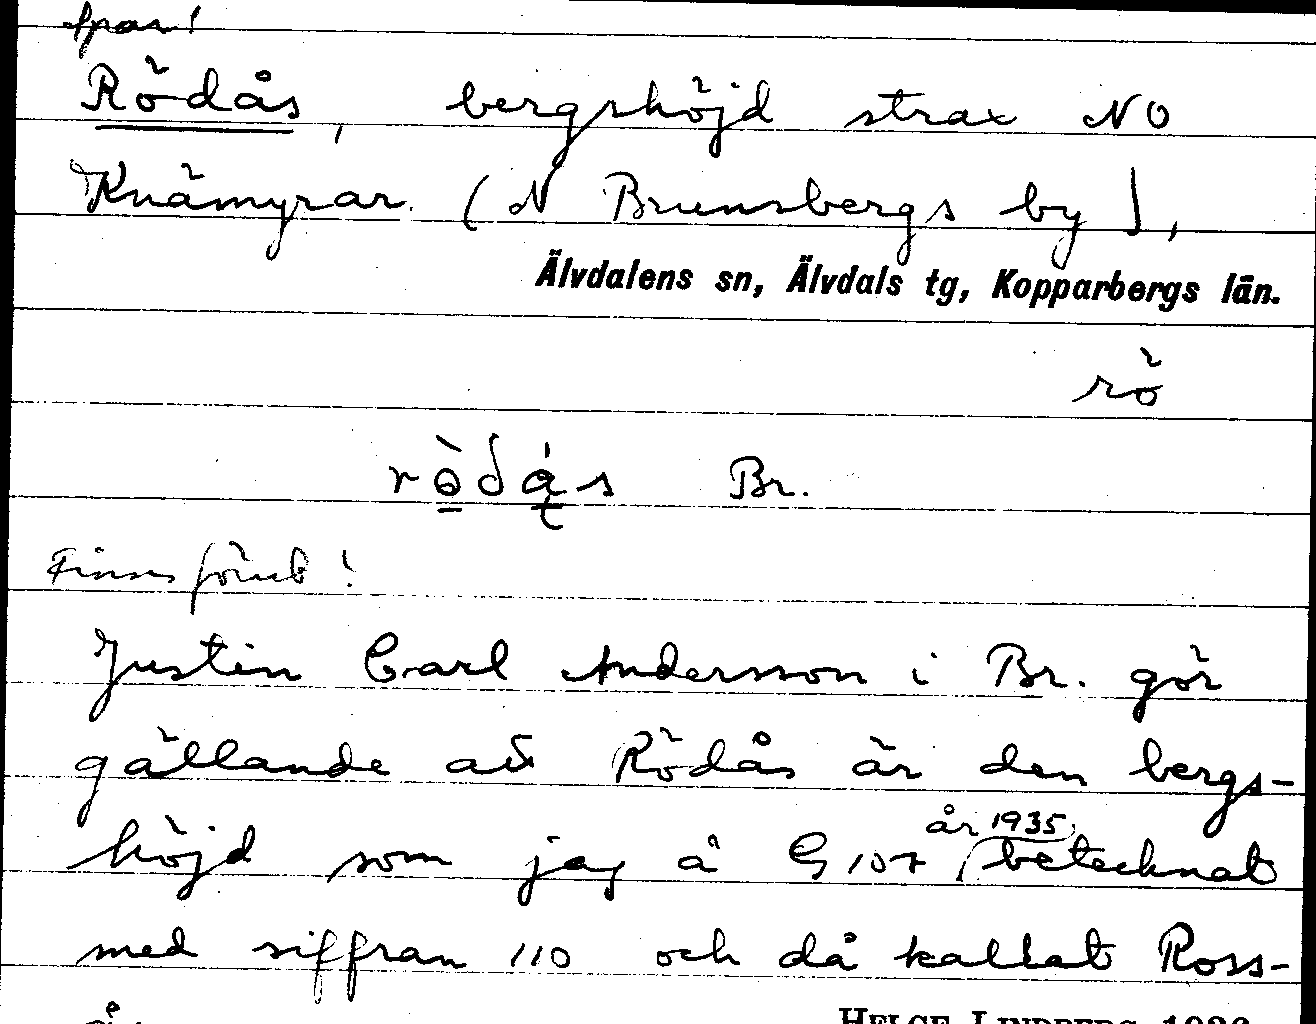 spar!
Rödås, bergshöjd strax NO
Knämyrar. (N Brunsbergs by),
Älvdalens sn, Älvdals tg, Kopparbergs län.
rö
rò̱dą́s Br.
Finns förut!
Justin Carl Andersson i Br. gör
gällande att Rödås är den bergs-
höjd som jag å G 107 år 1935 betecknat
med siffran 110 och då kallat Ross-
HELGE LINDBERG 1936